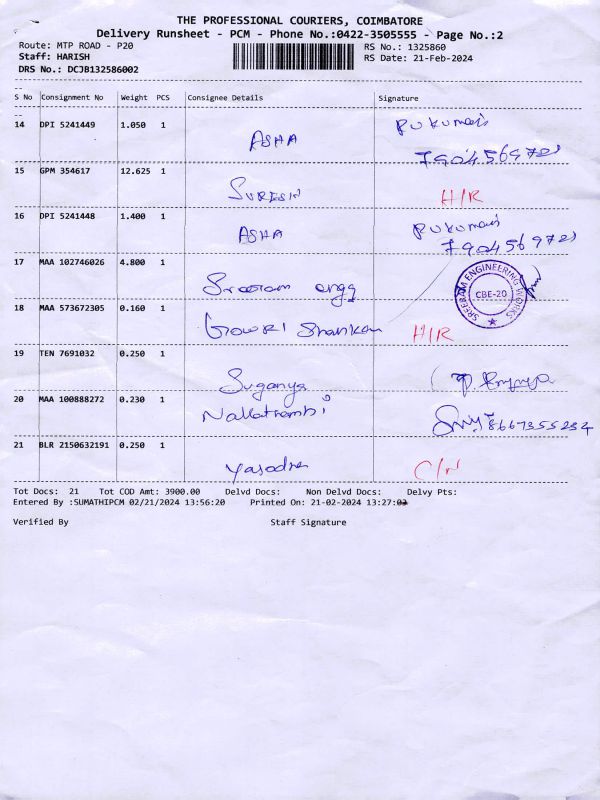 THE PROFESSIONAL COURIERS, COIMBATORE
Delivery Runsheet - PCM - Phone No.:0422-3505555 - Page No.:2
Route: MTP ROAD - P20 RS No.: 1325860
Staff: HARISH RS Date: 21-Feb-2024
DRS No.: DCJB132586002
S No Consignment No Weight PCS Consignee Details Signature
14 DPI 5241449 1.050 1 ASHA
7904569721
15 GPM 354617 12.625 1 SURESH H/R
16 DPI 5241448 1.400 1 ASHA
7904569721
17 MAA 102746026 4.800 1 Sreeram engg
SREERAM ENGINEERING WORKS
CBE-20
18 MAA 573672305 0.160 1 Gowri Shankar H/R
19 TEN 7691032 0.250 1 Suganya
20 MAA 100888272 0.230 1 Nallathambi 8667355234
21 BLR 2150632191 0.250 1 Yasodha
Tot Docs: 21 Tot COD Amt: 3900.00 Delvd Docs: Non Delvd Docs: Delvy Pts:
Entered By :SUMATHIPCM 02/21/2024 13:56:20 Printed On: 21-02-2024 13:27:03
Verified By Staff Signature